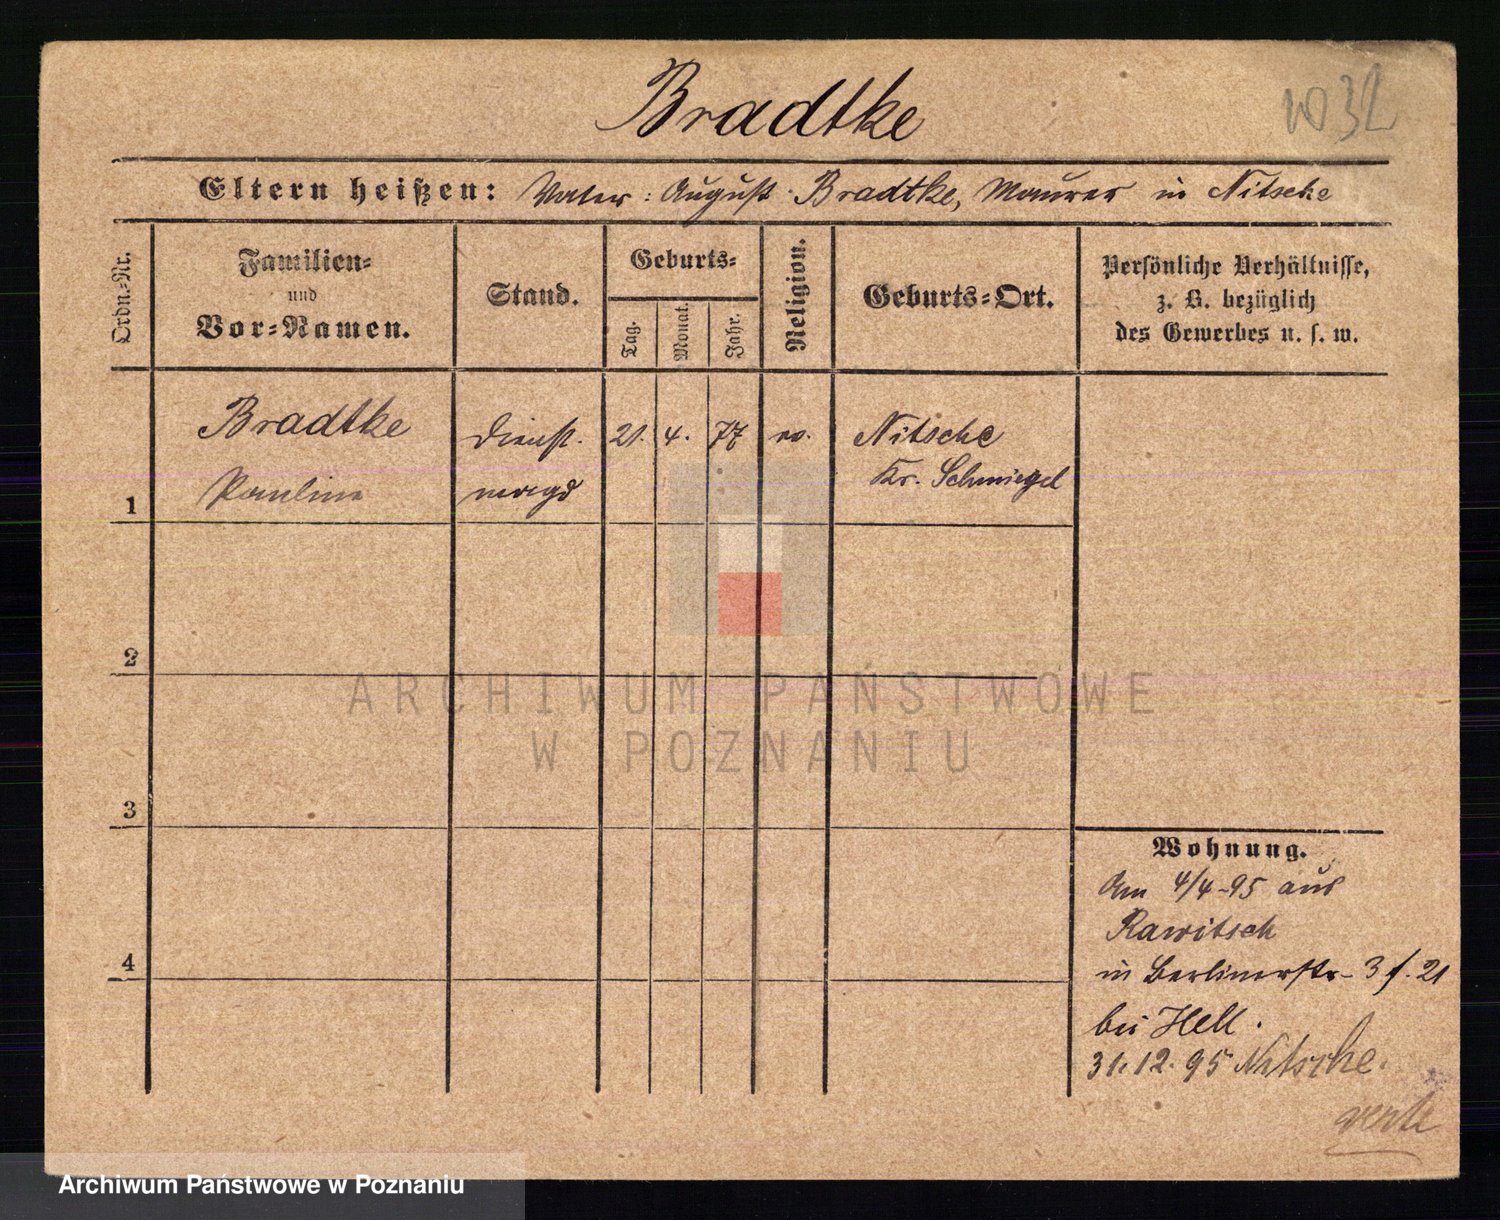 Bradtke
Eltern heißen: Vater: August Bradtke, Maurer in Nitsche
Ordn.-Nr.
Familien-
und
Vor-Namen.
Stand.
Geburts-
Tag.
Monat.
Jahr.
Religion.
Geburts-Ort.
Persönliche Verhältnisse,
z. B. bezüglich
des Gewerbes u. s. w.
1
Bradtke
Pauline
Dienst.
magd
21.
4.
77
ev.
Nitsche
Kr. Schmiegel
2
3
4
Wohnung.
Am 4/4-95 aus
Rawitsch
in Berlinerstr- 3 f. 21
bei Hell.
31.12.95 Nitsche.
ARCHIWUM PAŃSTWOWE
W POZNANIU
Archiwum Państwowe w Poznaniu